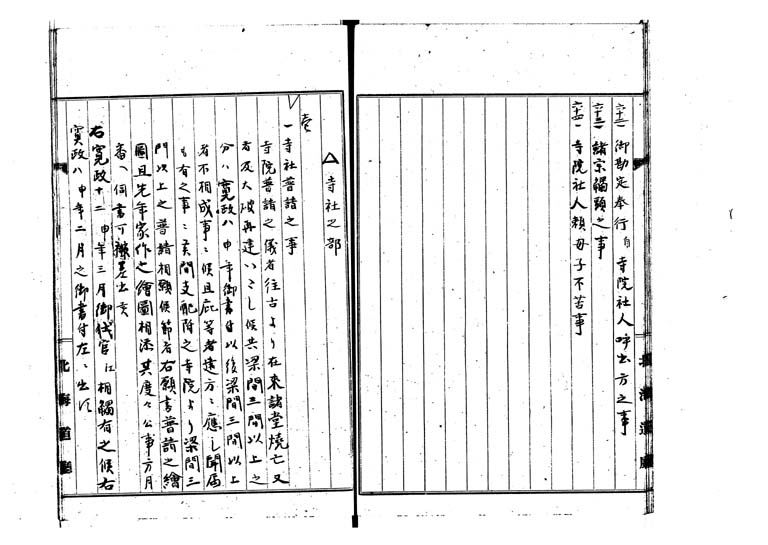 六十二一 御勘定奉行ゟ寺院社人呼出方之事
六十三一 諸宗觸頭之事
六十四一 寺院社人頼母子不苦事
北海道廳
△ 寺社之部
壱
一 寺社普請之事
寺院普請之儀者往古より在来諸堂燒亡又
者及大破再建いたし候共梁間三間以上之
分ハ寛政八申年御書付以後梁間三間以上
者不相成事ニ候且庇等者遠方ニ應し聞届
も有之事ニ其間支配附之寺院より梁間三
門以上之普請相願候節者右願書普請之繪
圖且先年家作之繪圖相添其度々公事方月
番ヘ伺書可差出亥
右寛政十二申年三月御代官江相觸有之候右
寛政八申年二月之御書付左ニ出ス
北海道廳